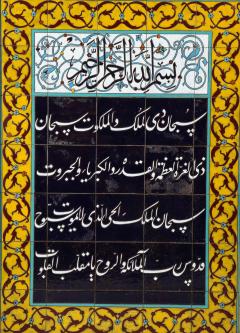 بسم الله الرحمن الرحيم
سبحان ذی الملک والملکوت سبحان
ذی العزة والعظمة والقدرة والکبریاء والجبروت
سبحان الملک الحی الذی لا یموت سبوح
قدوس رب الملائکة والروح یا مقلب القلوب